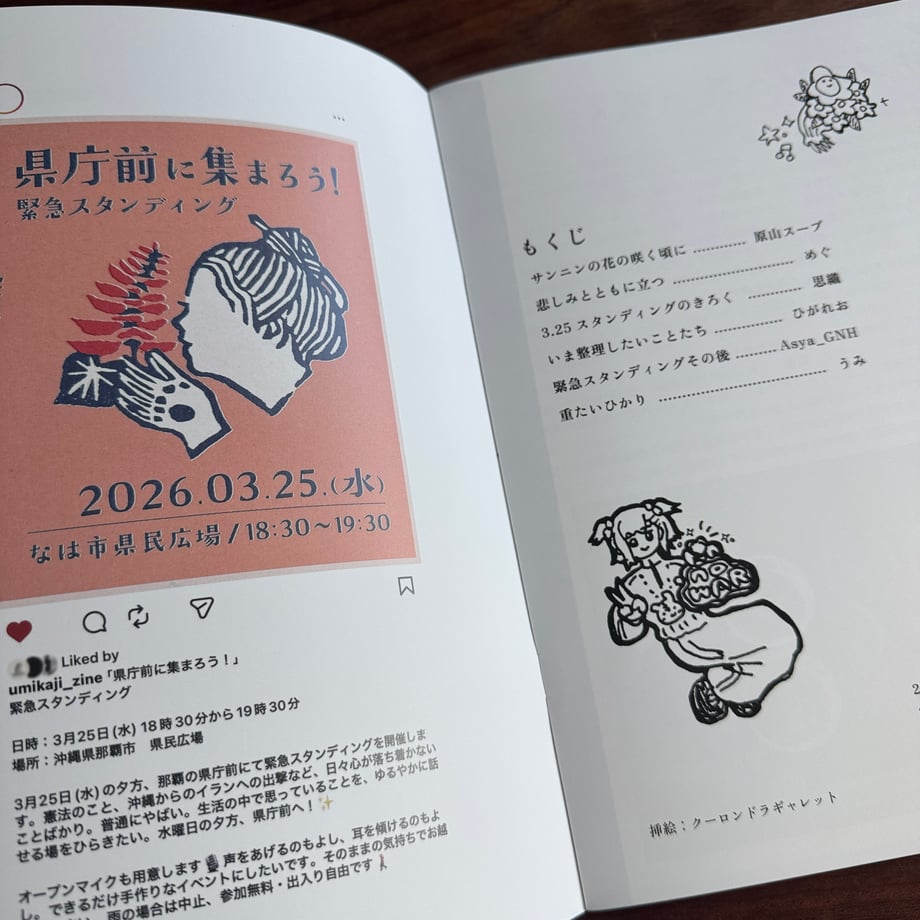 県庁前に集まろう!
緊急スタンディング
2026.03.25.(水)
なは市県民広場/18:30〜19:30
Liked by
umikaji_zine「県庁前に集まろう!」
緊急スタンディング
日時：3月25日(水) 18時30分から19時30分
場所：沖縄県那覇市 県民広場
3月25日(水)の夕方、那覇の県庁前にて緊急スタンディングを開催しま
す。憲法のこと、沖縄からのイランへの出撃など、日々心が落ち着かない
ことばかり。普通にやばい。生活の中で思っていることを、ゆるやかに話
せる場をひらきたい。水曜日の夕方、県庁前へ！✨
オープンマイクも用意します🎙声をあげるのもよし、耳を傾けるのもよ
し。できるだけ手作りなイベントにしたいです。そのままの気持ちでお越
雨の場合は中止、参加無料・出入り自由です
もくじ
サンニンの花の咲く頃に ………… 原山スープ
悲しみとともに立つ ………………… めぐ
3.25 スタンディングのきろく ………… 思繊
いま整理したいことたち ………… ひがれお
緊急スタンディングその後 ……… Asya_GNH
重たいひかり ………………………… うみ
NO
WAR
挿絵：クーロンドラギャレット